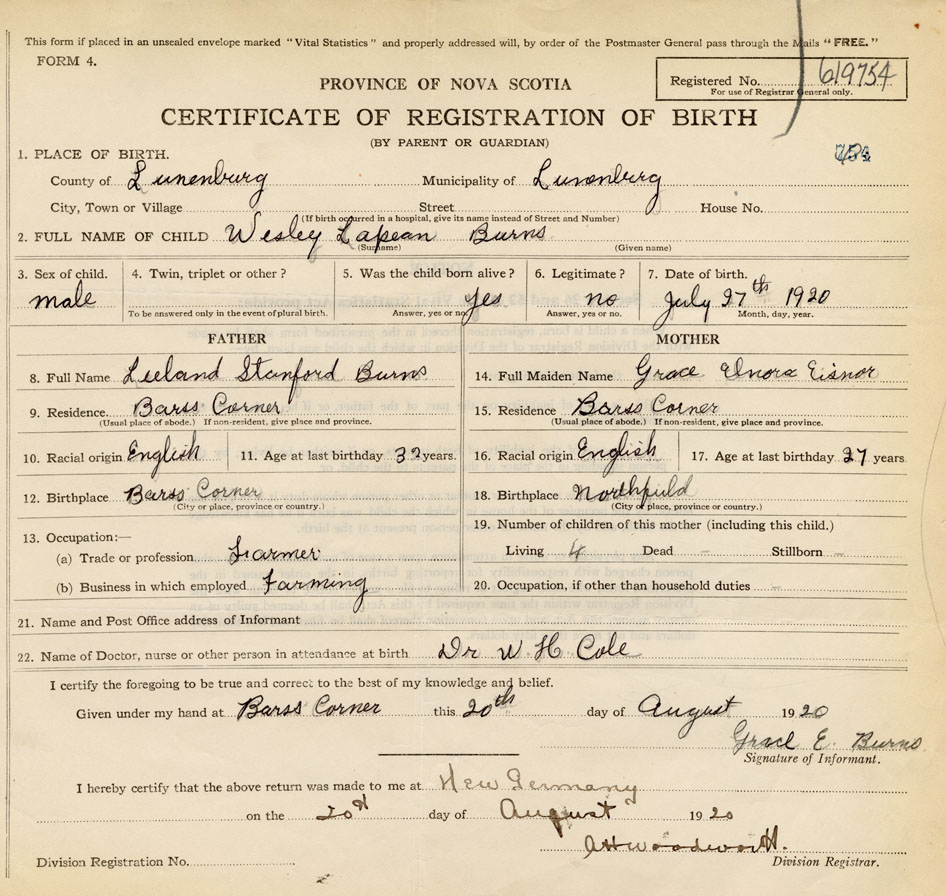 This form if placed in an unsealed envelope marked "Vital Statistics" and properly addressed will, by order of the Postmaster General pass through the Mails "FREE."
FORM 4.
Registered No. 619754
For use of Registrar General only.
PROVINCE OF NOVA SCOTIA
CERTIFICATE OF REGISTRATION OF BIRTH
(BY PARENT OR GUARDIAN)
1. PLACE OF BIRTH.
County of Lunenburg Municipality of Lunenburg
City, Town or Village Street House No.
(If birth occurred in a hospital, give its name instead of Street and Number)
2. FULL NAME OF CHILD Wesley Lapean Burns
(Surname) (Given name)
3. Sex of child. 4. Twin, triplet or other? 5. Was the child born alive? 6. Legitimate? 7. Date of birth.
male yes no July 27th 1920
To be answered only in the event of plural birth. Answer, yes or no Answer, yes or no. Month, day, year.
FATHER MOTHER
8. Full Name Leeland Stanford Burns 14. Full Maiden Name Grace Elnora Eisnor
9. Residence. Barss Corner 15. Residence Barss Corner
(Usual place of abode.) If non-resident, give place and province. (Usual place of abode.) If non-resident, give place and province.
10. Racial origin English 11. Age at last birthday 32 years. 16. Racial origin English 17. Age at last birthday 27 years
12. Birthplace Barss Corner 18. Birthplace Northfield
(City or place, province or country.) (City or place, province or country.)
13. Occupation:— 19. Number of children of this mother (including this child.)
(a) Trade or profession Farmer Living 4 Dead - Stillborn -
(b) Business in which employed Farming 20. Occupation, if other than household duties -
21. Name and Post Office address of Informant
22. Name of Doctor, nurse or other person in attendance at birth Dr W. H Cole
I certify the foregoing to be true and correct to the best of my knowledge and belief.
Given under my hand at Barss Corner this 20th day of August 1920
Grace E. Burns
Signature of Informant.
I hereby certify that the above return was made to me at New Germany
on the 20th day of August 1920
Division Registration No. Division Registrar.